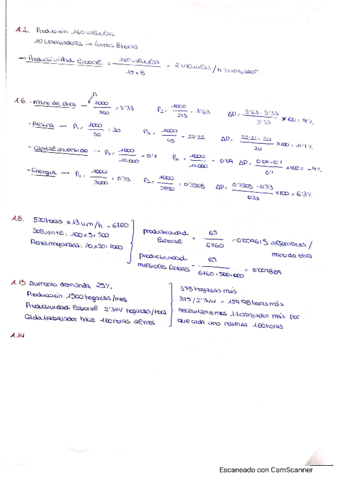 1.2. Producción 160 válvulas
10 trabajadores → 8 horas
→ Productividad laboral = 160 válvulas / 10 × 8 = 2 válvulas/h trabajador
1.6. - Mano de obra → P₁ = 1000 / 300 = 3'33 P₂ = 1000 / 275 = 3'63 ΔP = 3'63 - 3'33 / 3'33 × 100 = 9%
- Resina → P₁ = 1000 / 50 = 20 P₂ = 1000 / 45 = 22'22 ΔP = 22'22 - 20 / 20 × 100 = 11'1%
- Capital invertido → P₁ = 1000 / 10.000 = 0'1 P₂ = 1000 / 11.000 = 0'09 ΔP = 0'09 - 0'1 / 0'1 × 100 = -9%
- Energía → P₁ = 1000 / 3000 = 0'33 P₂ = 1000 / 2850 = 0'3508 ΔP = 0'3508 - 0'33 / 0'33 × 100 = 6'3%
1.8. 520 horas × 13 um/h = 6760
Solvente: 100 × 5 = 500
Renta maquinaria: 20 × 50 = 1000
productividad laboral = 65 / 6760 = 0'009615 alfombras / mano de obra
productividad múltiples factores = 65 / 6760 + 500 + 1000
1.13 Aumento demanda 25%
Producción 1500 hogazas/mes
Productividad laboral 2'344 hogazas/hora
Cada trabajador hace 160 horas al mes
375 hogazas más
375 / 2'344 = 159'98 horas más
necesitaríamos 1 trabajador más por
que cada uno realiza 160 horas
1.14
Escaneado con CamScanner